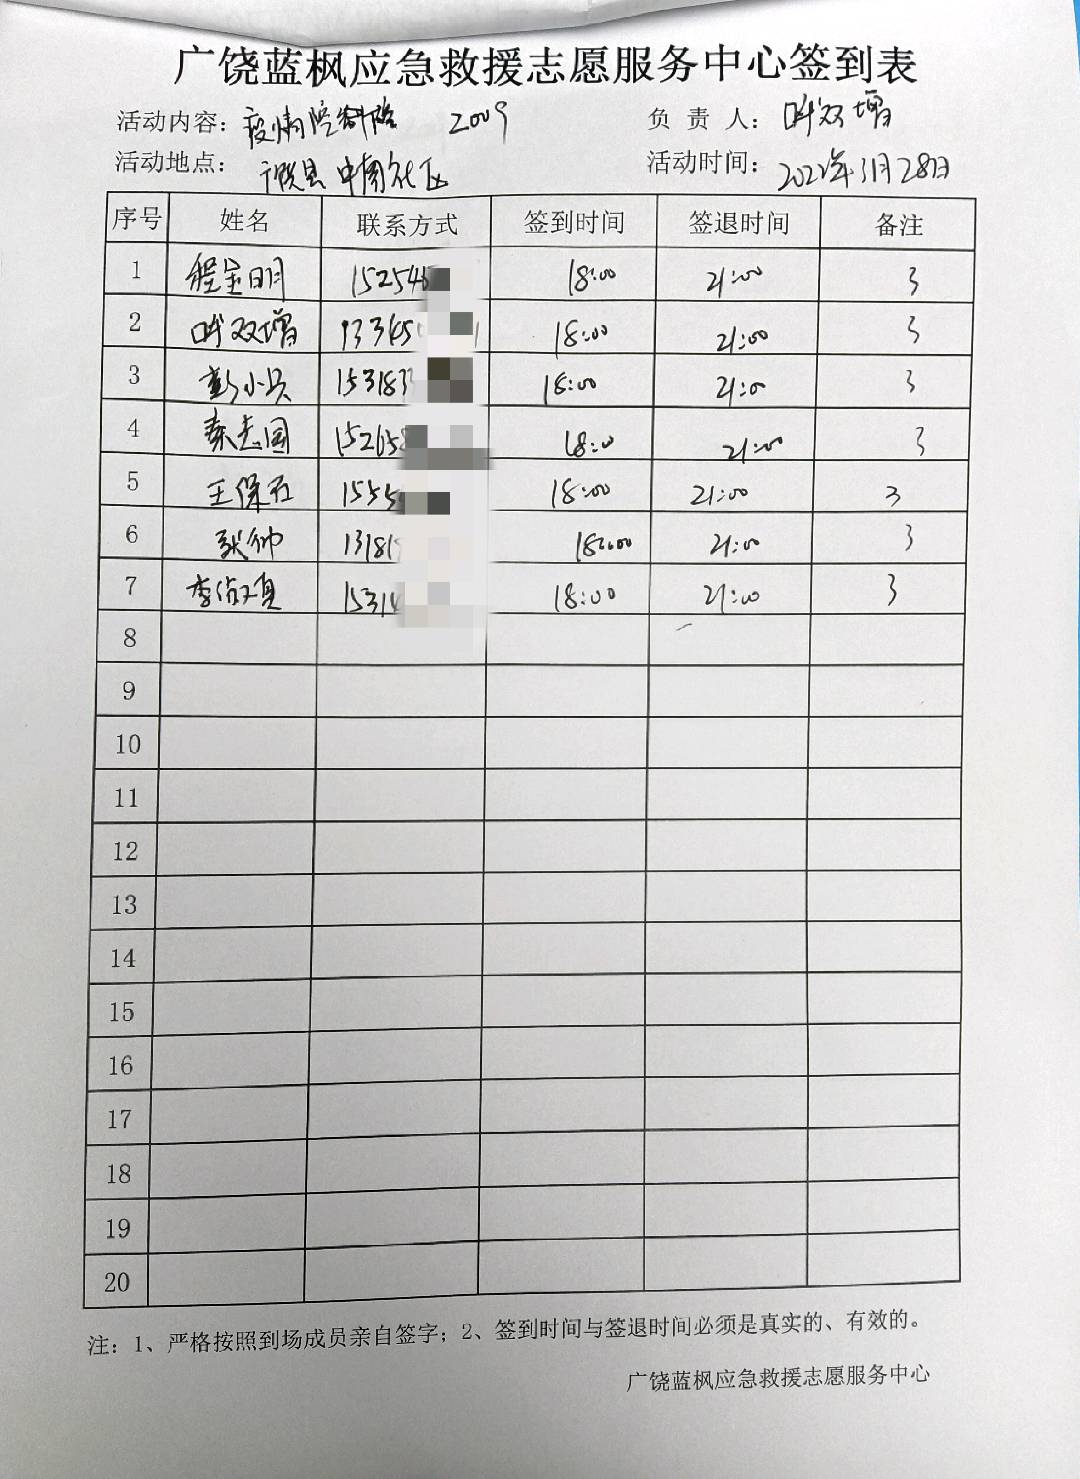 广饶蓝枫应急救援志愿服务中心签到表
活动内容：疫情 2009 负责人：双增
活动地点：广饶县中南社区 活动时间：2022年3月28日
序号 姓名 联系方式 签到时间 签退时间 备注
1 程金明 152545 18:00 21:00 3
2 双增 133450 18:00 21:00 3
3 彭小兵 153183 18:00 21:00 3
4 秦志国 152658 18:00 21:00 3
5 王保石 1555 18:00 21:00 3
6 张帅 13181 18:00 21:00 3
7 李 15314 18:00 21:00 3
8
9
10
11
12
13
14
15
16
17
18
19
20
注：1、严格按照到场成员亲自签字；2、签到时间与签退时间必须是真实的、有效的。
广饶蓝枫应急救援志愿服务中心